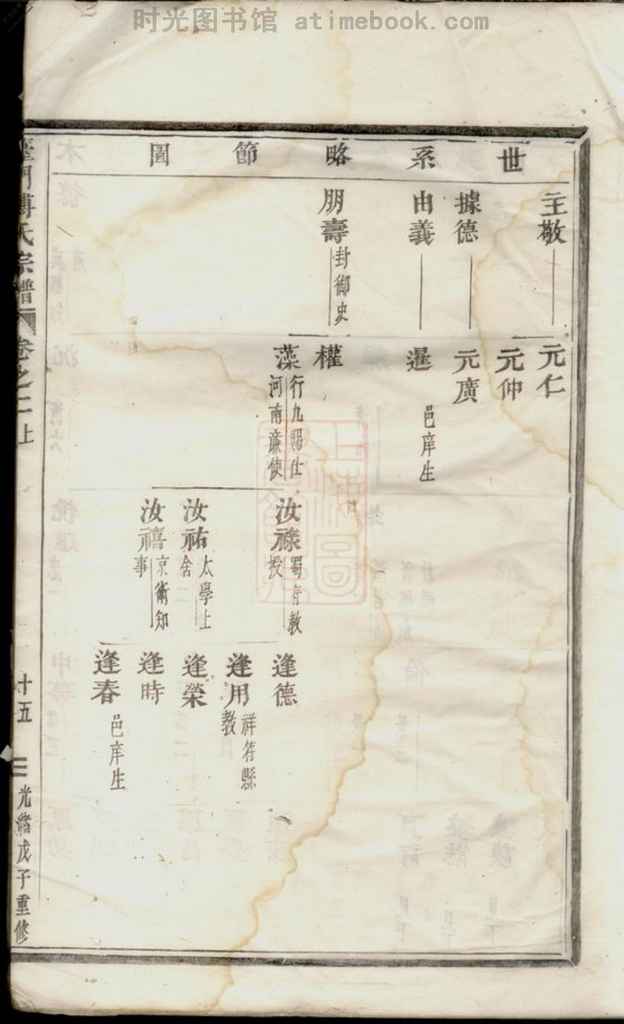 时光图书馆 atimebook.com
世系略節圖
主敬
據德
由義
朋壽 封御史
元仁
元仲
元廣
暹 邑庠生
權
藻 行九賜仕
河南廉使
汝祿 蜀府教
授
汝祐 太學上
舍
汝禧 京衛知
事
逢德
逢用 祥符縣
教
逢榮
逢時
逢春 邑庠生
傅氏宗譜
卷之二上
十五
光緒戊子重修